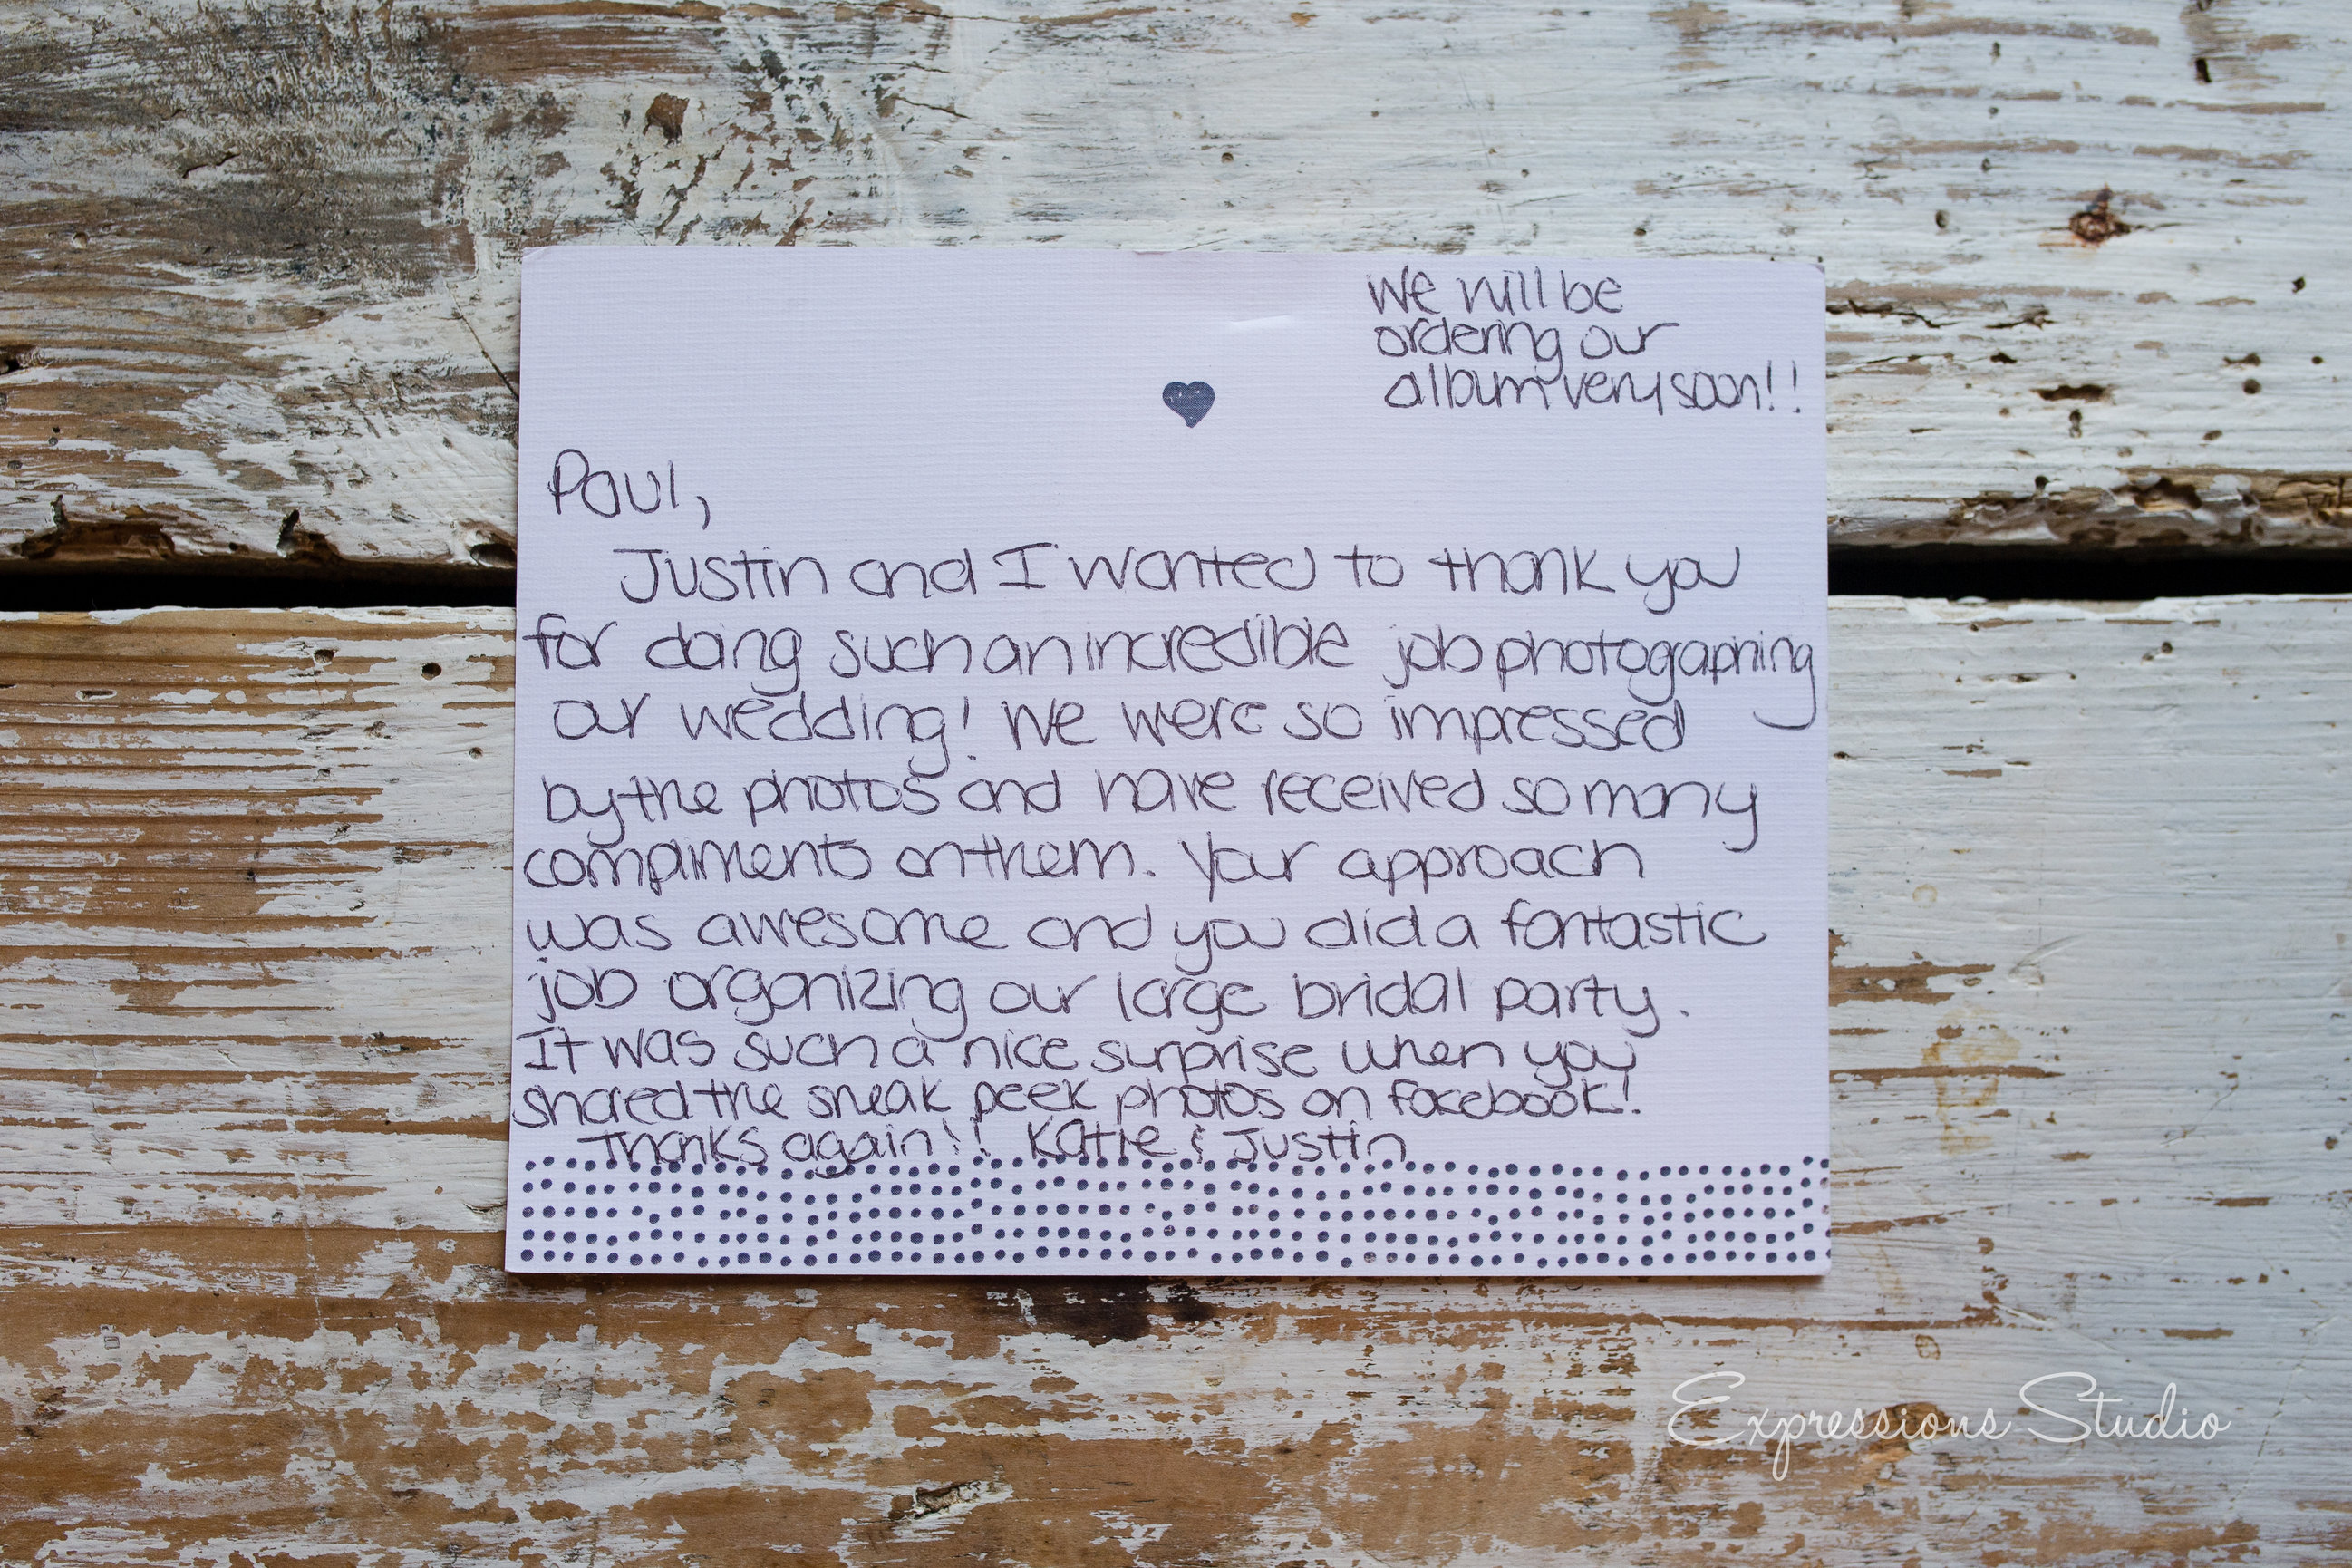 We will be
ordering our
album very soon!!
Paul,
Justin and I wanted to thank you
for doing such an incredible job photographing
our wedding! We were so impressed
by the photos and have received so many
compliments on them. Your approach
was awesome and you did a fantastic
job organizing our large bridal party.
It was such a nice surprise when you
shared the sneak peek photos on facebook!
Thanks again!! Katie & Justin
Expressions Studio